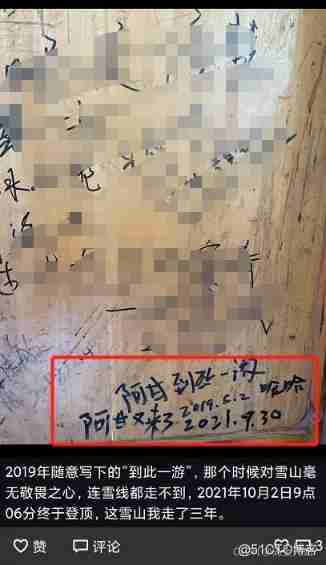 来。吧
阿甘到此一游
2019.5.2 哈哈
阿甘又来了 2021.9.30
2019年随意写下的“到此一游”，那个时候对雪山毫
无敬畏之心，连雪线都走不到，2021年10月2日9点
06分终于登顶，这雪山我走了三年。
赞 评论 3
@51CTO博客